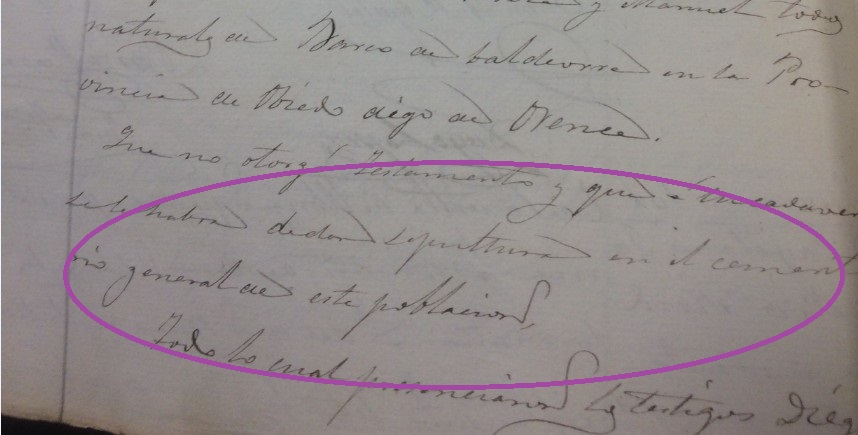 y Manuel todos
naturales de Barco de baldeorre en la Pro-
vincia de Obiedo digo de Orence.
Que no otorgó testamento y que a su cadaver
se le habra de dar sepulttura en el cement
rio general de este poblacion,
Todo lo cual presenciaron los testigos Dieg